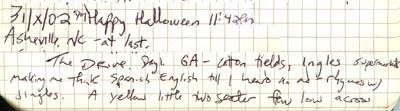 31/X/02 Happy Halloween 11:42pm
Asheville, NC - at last.
The Drive. Day 1. GA - cotton fields, Ingles supermarket
making me think Spanish English till I heard an ad - rhymes w/
jingles. A yellow little two seater flew low across